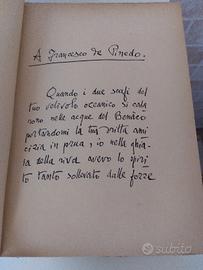 A Francesco de Pinedo.
Quando i due scafi del
tuo velivolo oceanico si cala
rono nelle acque del Benàco
portandomi la tua svelta ami
cizia in prua, io nella ghia
ia della riva avevo lo spiri
to tanto sollevato dalle forze
subito